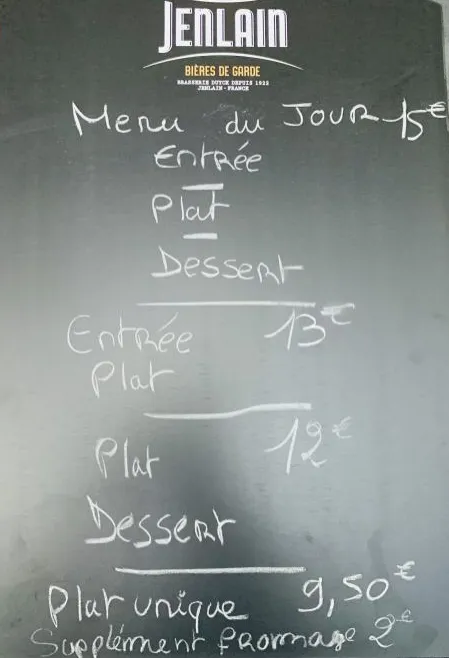 JENLAIN
BIÈRES DE GARDE
BRASSERIE DUYCK DEPUIS 1922
JENLAIN - FRANCE
Menu du JOUR 15€
Entrée
Plat
Dessert
Entrée 13€
Plat
Plat 12€
Dessert
Plat unique 9,50€
Supplément fromage 2€